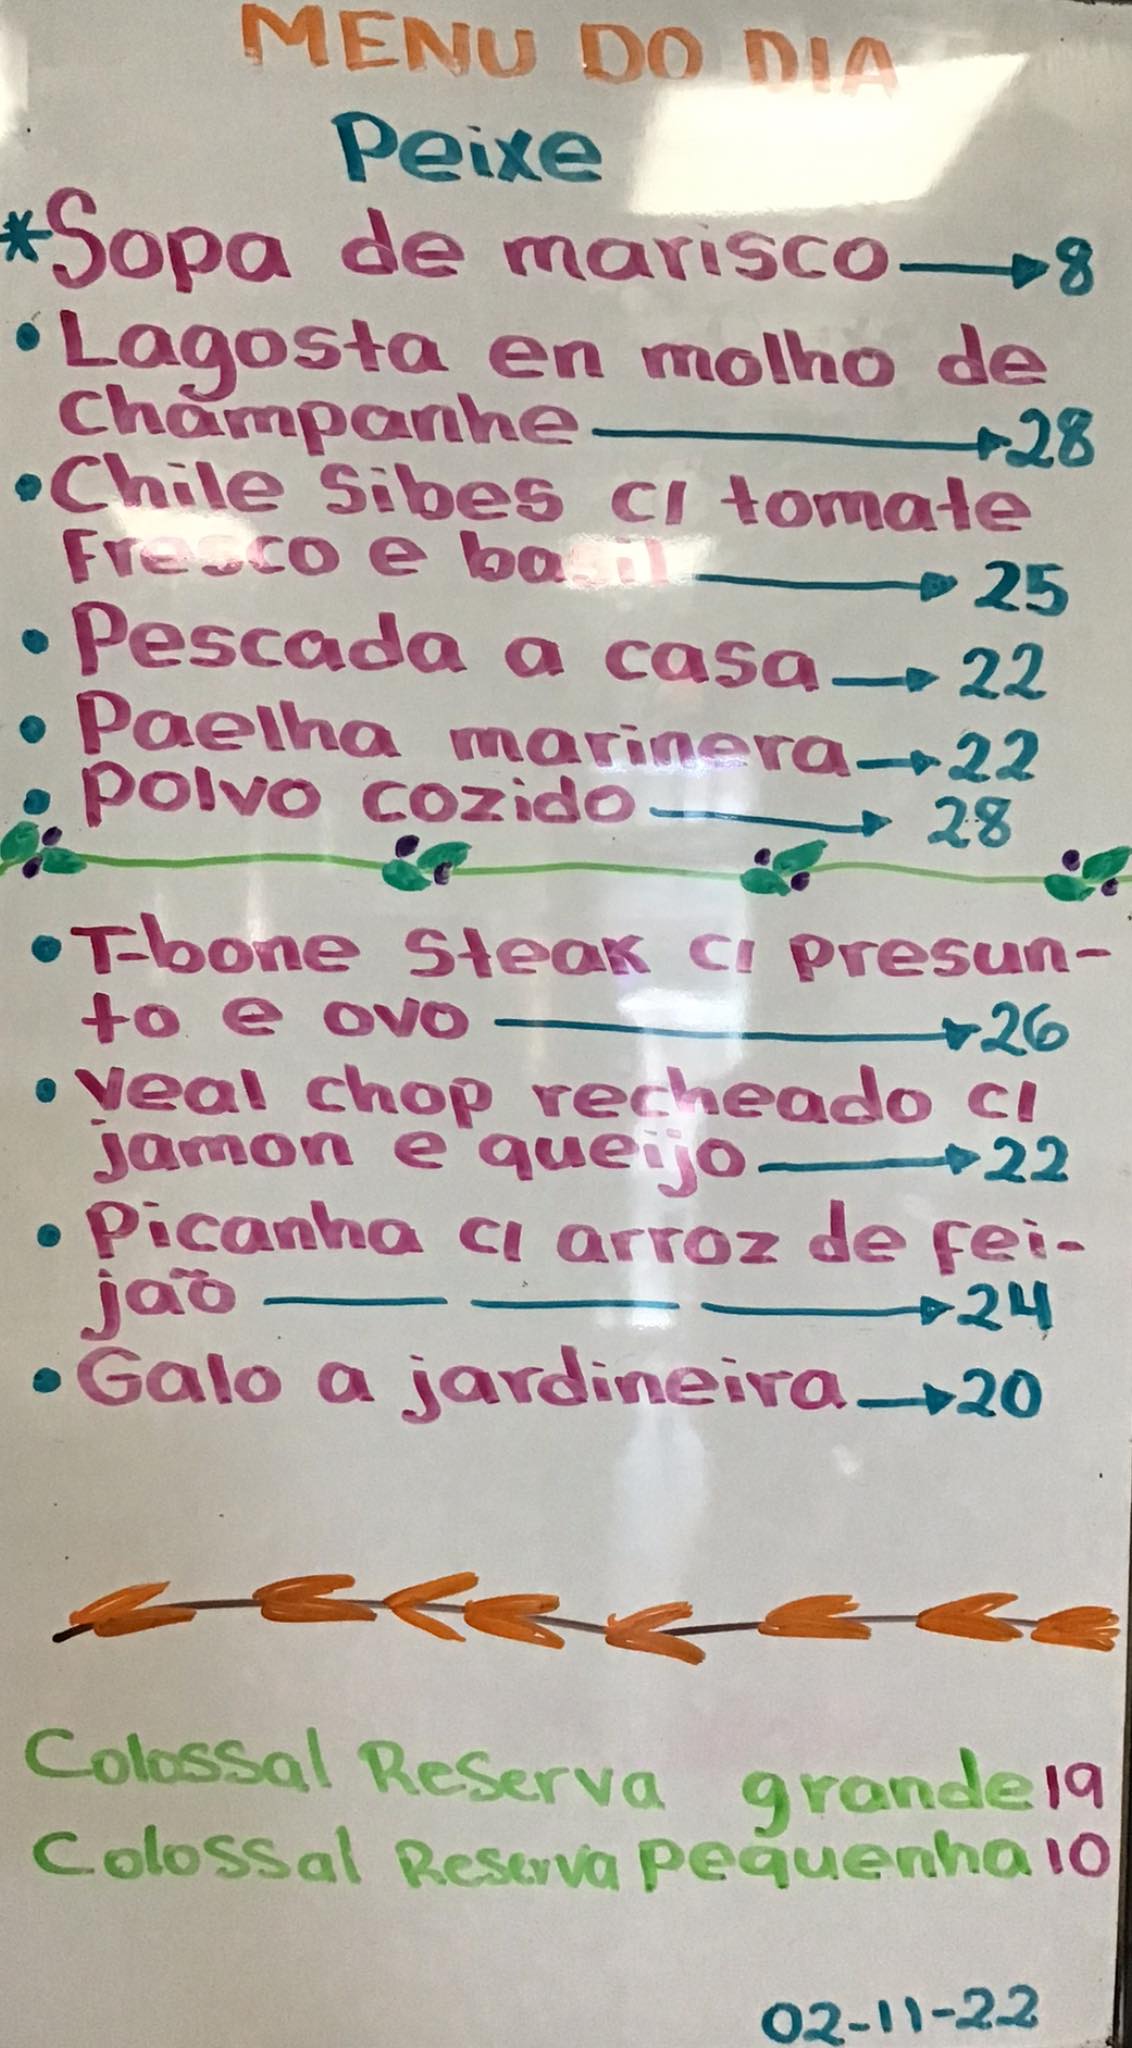 MENU DO DIA
Peixe
*Sopa de marisco → 8
• Lagosta en molho de
champanhe → 28
• Chile Sibes c/ tomate
Fresco e basil → 25
• Pescada a casa → 22
• Paelha marinera → 22
• polvo cozido → 28
• T-bone Steak c/ presun-
to e ovo → 26
• Veal chop recheado c/
jamon e queijo → 22
• Picanha c/ arroz de fei-
jaõ → 24
• Galo a jardineira → 20
Colossal Reserva grande 19
Colossal Reserva pequenha 10
02-11-22